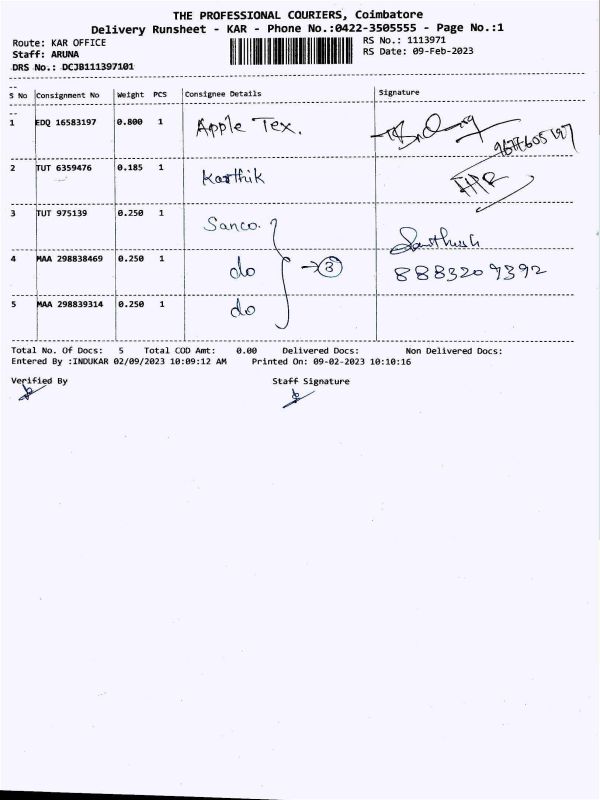 THE PROFESSIONAL COURIERS, Coimbatore
Delivery Runsheet - KAR - Phone No.:0422-3505555 - Page No.:1
Route: KAR OFFICE RS No.: 1113971
Staff: ARUNA RS Date: 09-Feb-2023
DRS No.: DCJB111397101
S No Consignment No Weight PCS Consignee Details Signature
1 EDQ 16583197 0.800 1 Apple Tex.
2 TUT 6359476 0.185 1 Karthik
3 TUT 975139 0.250 1 Sanco.
Santhosh
4 MAA 298838469 0.250 1 do → 3 8883209392
5 MAA 298839314 0.250 1 do
Total No. Of Docs: 5 Total COD Amt: 0.00 Delivered Docs: Non Delivered Docs:
Entered By :INDUKAR 02/09/2023 10:09:12 AM Printed On: 09-02-2023 10:10:16
Verified By Staff Signature